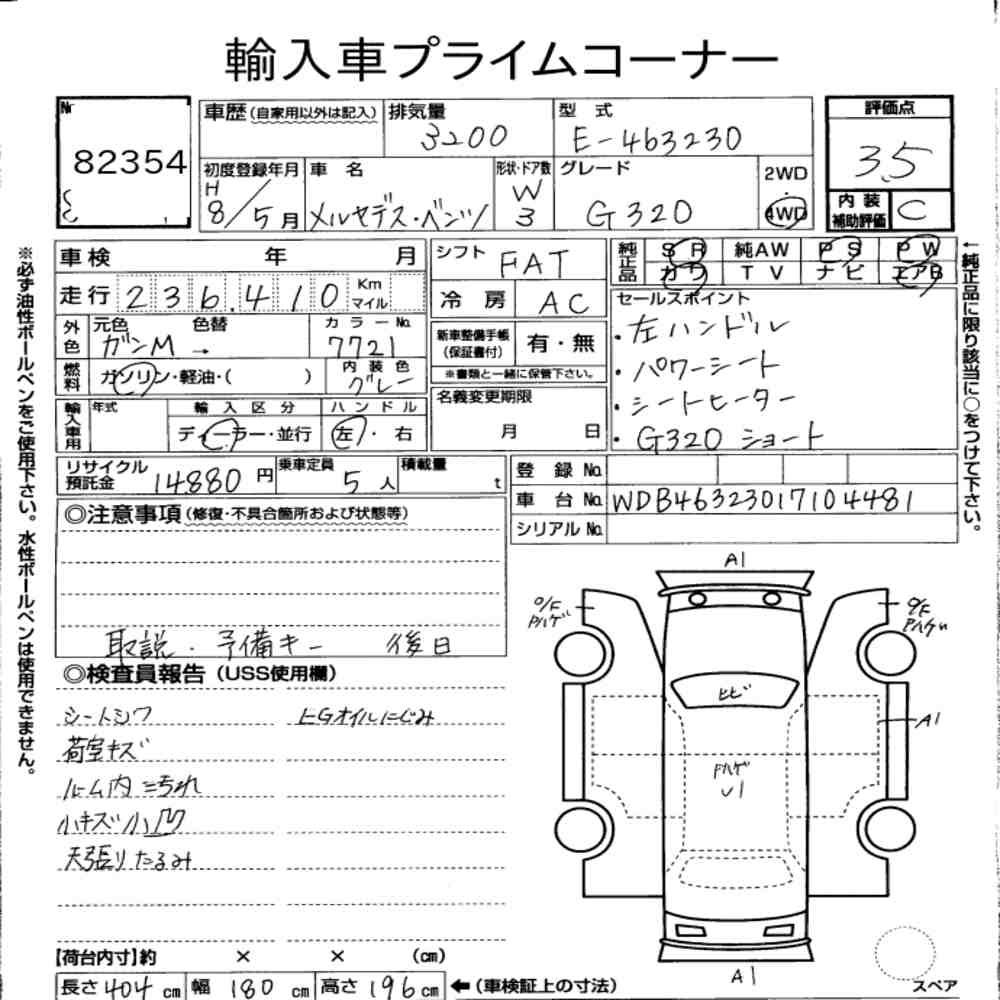 輸入車プライムコーナー
Nr 82354
車歴(自家用以外は記入)
排気量 3200
型式 E-463230
評価点 3.5
初度登録年月 H 8/5月
車名 メルセデス・ベンツ
形状・ドア数 W 3
グレード G320
2WD・4WD
内装補助評価 C
車検 年 月
シフト FAT
純正品 SR 純AW PS PW
カワ TV ナビ エアB
走行 236,410 Km マイル
冷房 AC
セールスポイント
・左ハンドル
・パワーシート
・シートヒーター
・G320 ショート
外色 元色 ガンM 色替 → カラーNo. 7721
新車整備手帳(保証書付) 有・無
※書類と一緒に保管下さい。
燃料 ガソリン・軽油・( ) 内装色 グレー
名義変更期限 月 日
輸入車用 年式 輸入区分 ディーラー・並行 ハンドル 左・右
リサイクル預託金 14880円 乗車定員 5人 積載量 t
登録No.
車台No. WDB46323017104481
シリアルNo.
◎注意事項(修復・不具合箇所および状態等)
取説・予備キー 後日
◎検査員報告(USS使用欄)
シートシワ EGオイルにじみ
荷室キズ
ルーム内ニ汚れ
小キズ小凹
天張りたるみ
A1
O/F Pハゲ
O/F Pハゲ
ヒビ
A1
Pハゲ
U1
A1
スペア
【荷台内寸】約 × × (cm)
長さ 404 cm 幅 180 cm 高さ 196 cm ←(車検証上の寸法)
※必ず油性ボールペンをご使用下さい。水性ボールペンは使用できません。
←純正品に限り該当に○をつけて下さい。